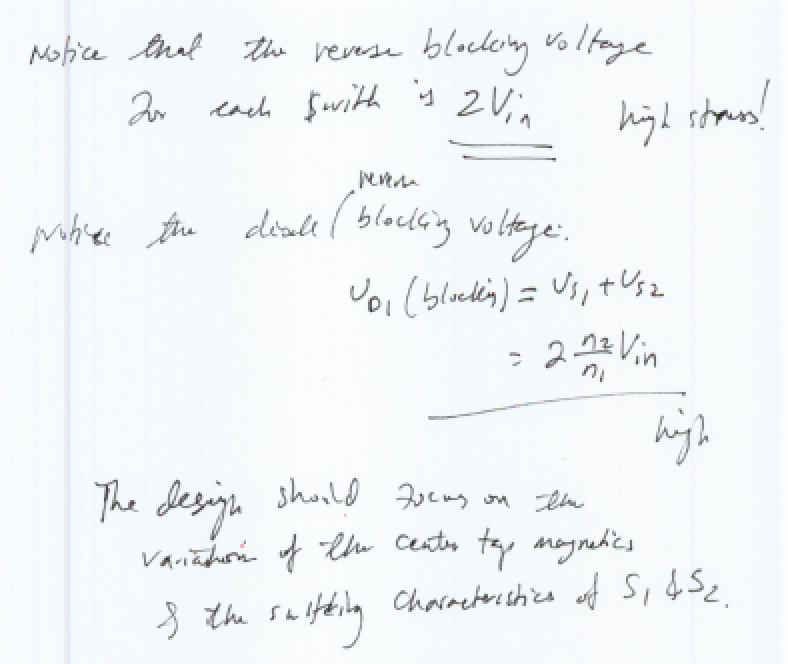 Notice that the reverse blocking voltage
for each switch is 2Vin high stress!
reverse
Notice the diode ( blocking voltage.
VD1 (blocking) = VS1 + VS2
= 2 n2/n1 Vin
high
The design should focus on the
variation of the center tap magnetics
& the switching characteristics of S1 & S2.